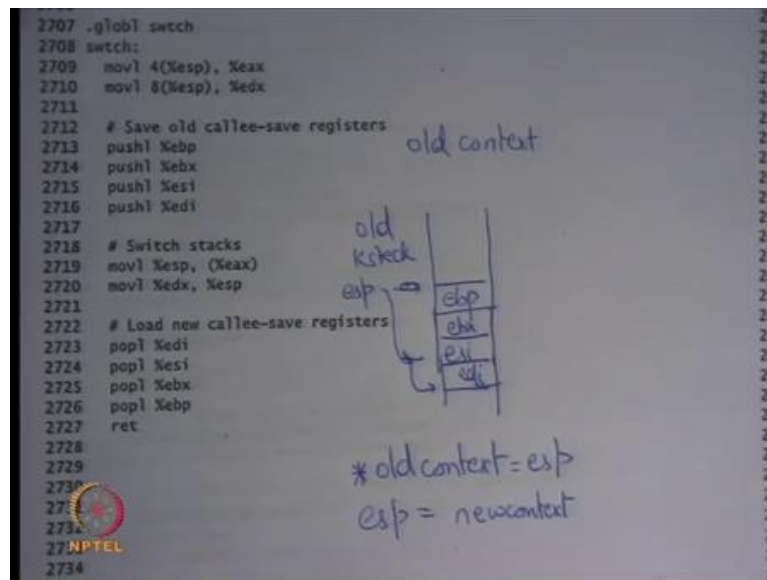 2707 .globl swtch
2708 swtch:
2709 movl 4(%esp), %eax
2710 movl 8(%esp), %edx
2711
2712 # Save old callee-save registers
2713 pushl %ebp
2714 pushl %ebx
2715 pushl %esi
2716 pushl %edi
2717
2718 # Switch stacks
2719 movl %esp, (%eax)
2720 movl %edx, %esp
2721
2722 # Load new callee-save registers
2723 popl %edi
2724 popl %esi
2725 popl %ebx
2726 popl %ebp
2727 ret
2728
2729
2734
old context
old
kstack
esp
ebp
ebx
esi
edi
* old context = esp
esp = newcontext
NPTEL